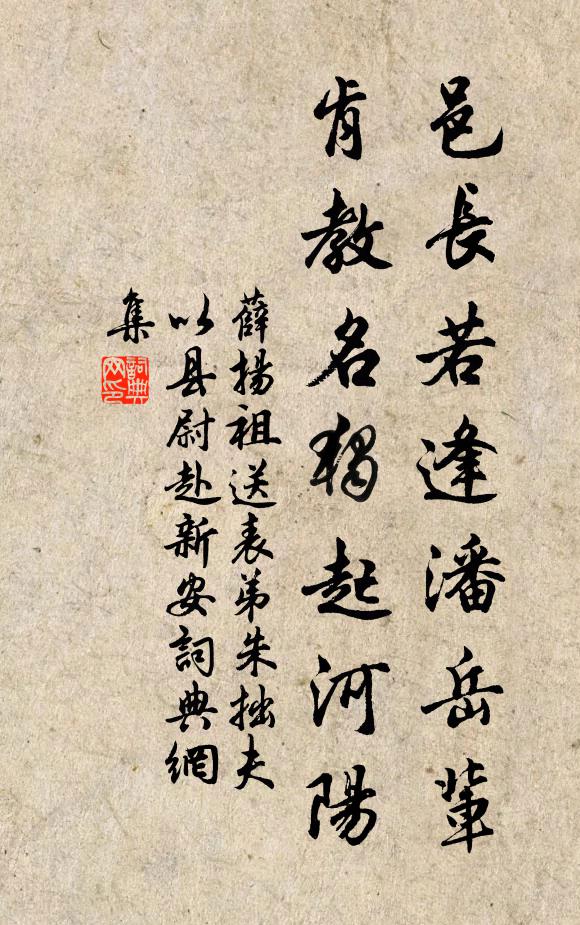 邑長若逢潘岳輩
肯教名獨起河陽
薛揚祖送表弟朱拙夫
以县尉赴新安詞典網
集
詞典
网印